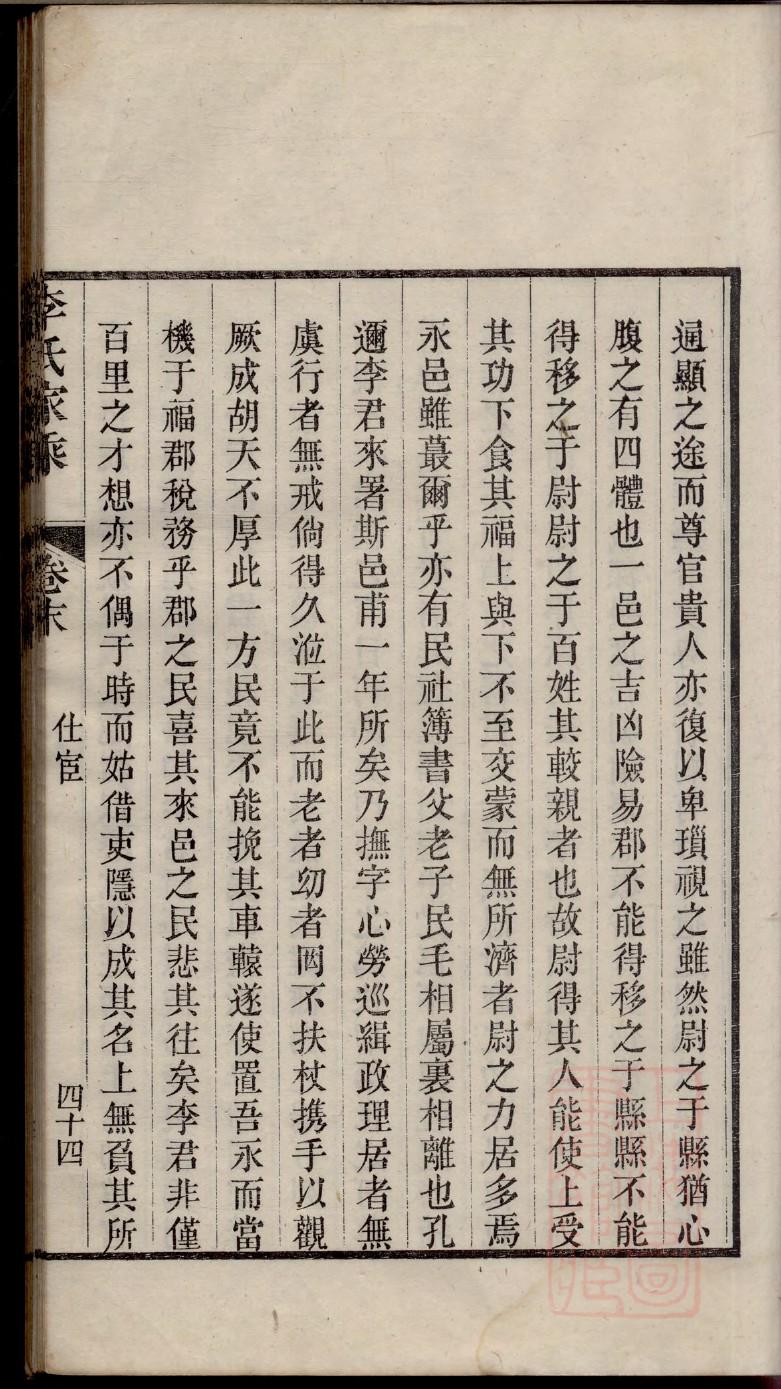 通顯之途而尊官貴人亦復以卑瑣視之雖然尉之于縣猶心
腹之有四體也一邑之吉凶險易郡不能得移之于縣縣不能
得移之于尉尉之于百姓其較親者也故尉得其人能使上受
其功下食其福上與下不至交蒙而無所濟者尉之力居多焉
永邑雖蕞爾乎亦有民社簿書父老子民毛相屬裏相離也孔
邇李君來署斯邑甫一年所矣乃撫字心勞巡緝政理居者無
虞行者無戒倘得久涖于此而老者幼者罔不扶杖携手以觀
厥成胡天不厚此一方民竟不能挽其車轅遂使置吾永而當
機于福郡稅務乎郡之民喜其來邑之民悲其往矣李君非僅
百里之才想亦不偶于時而姑借吏隱以成其名上無負其所
李氏家乘
卷末
仕宦
四十四